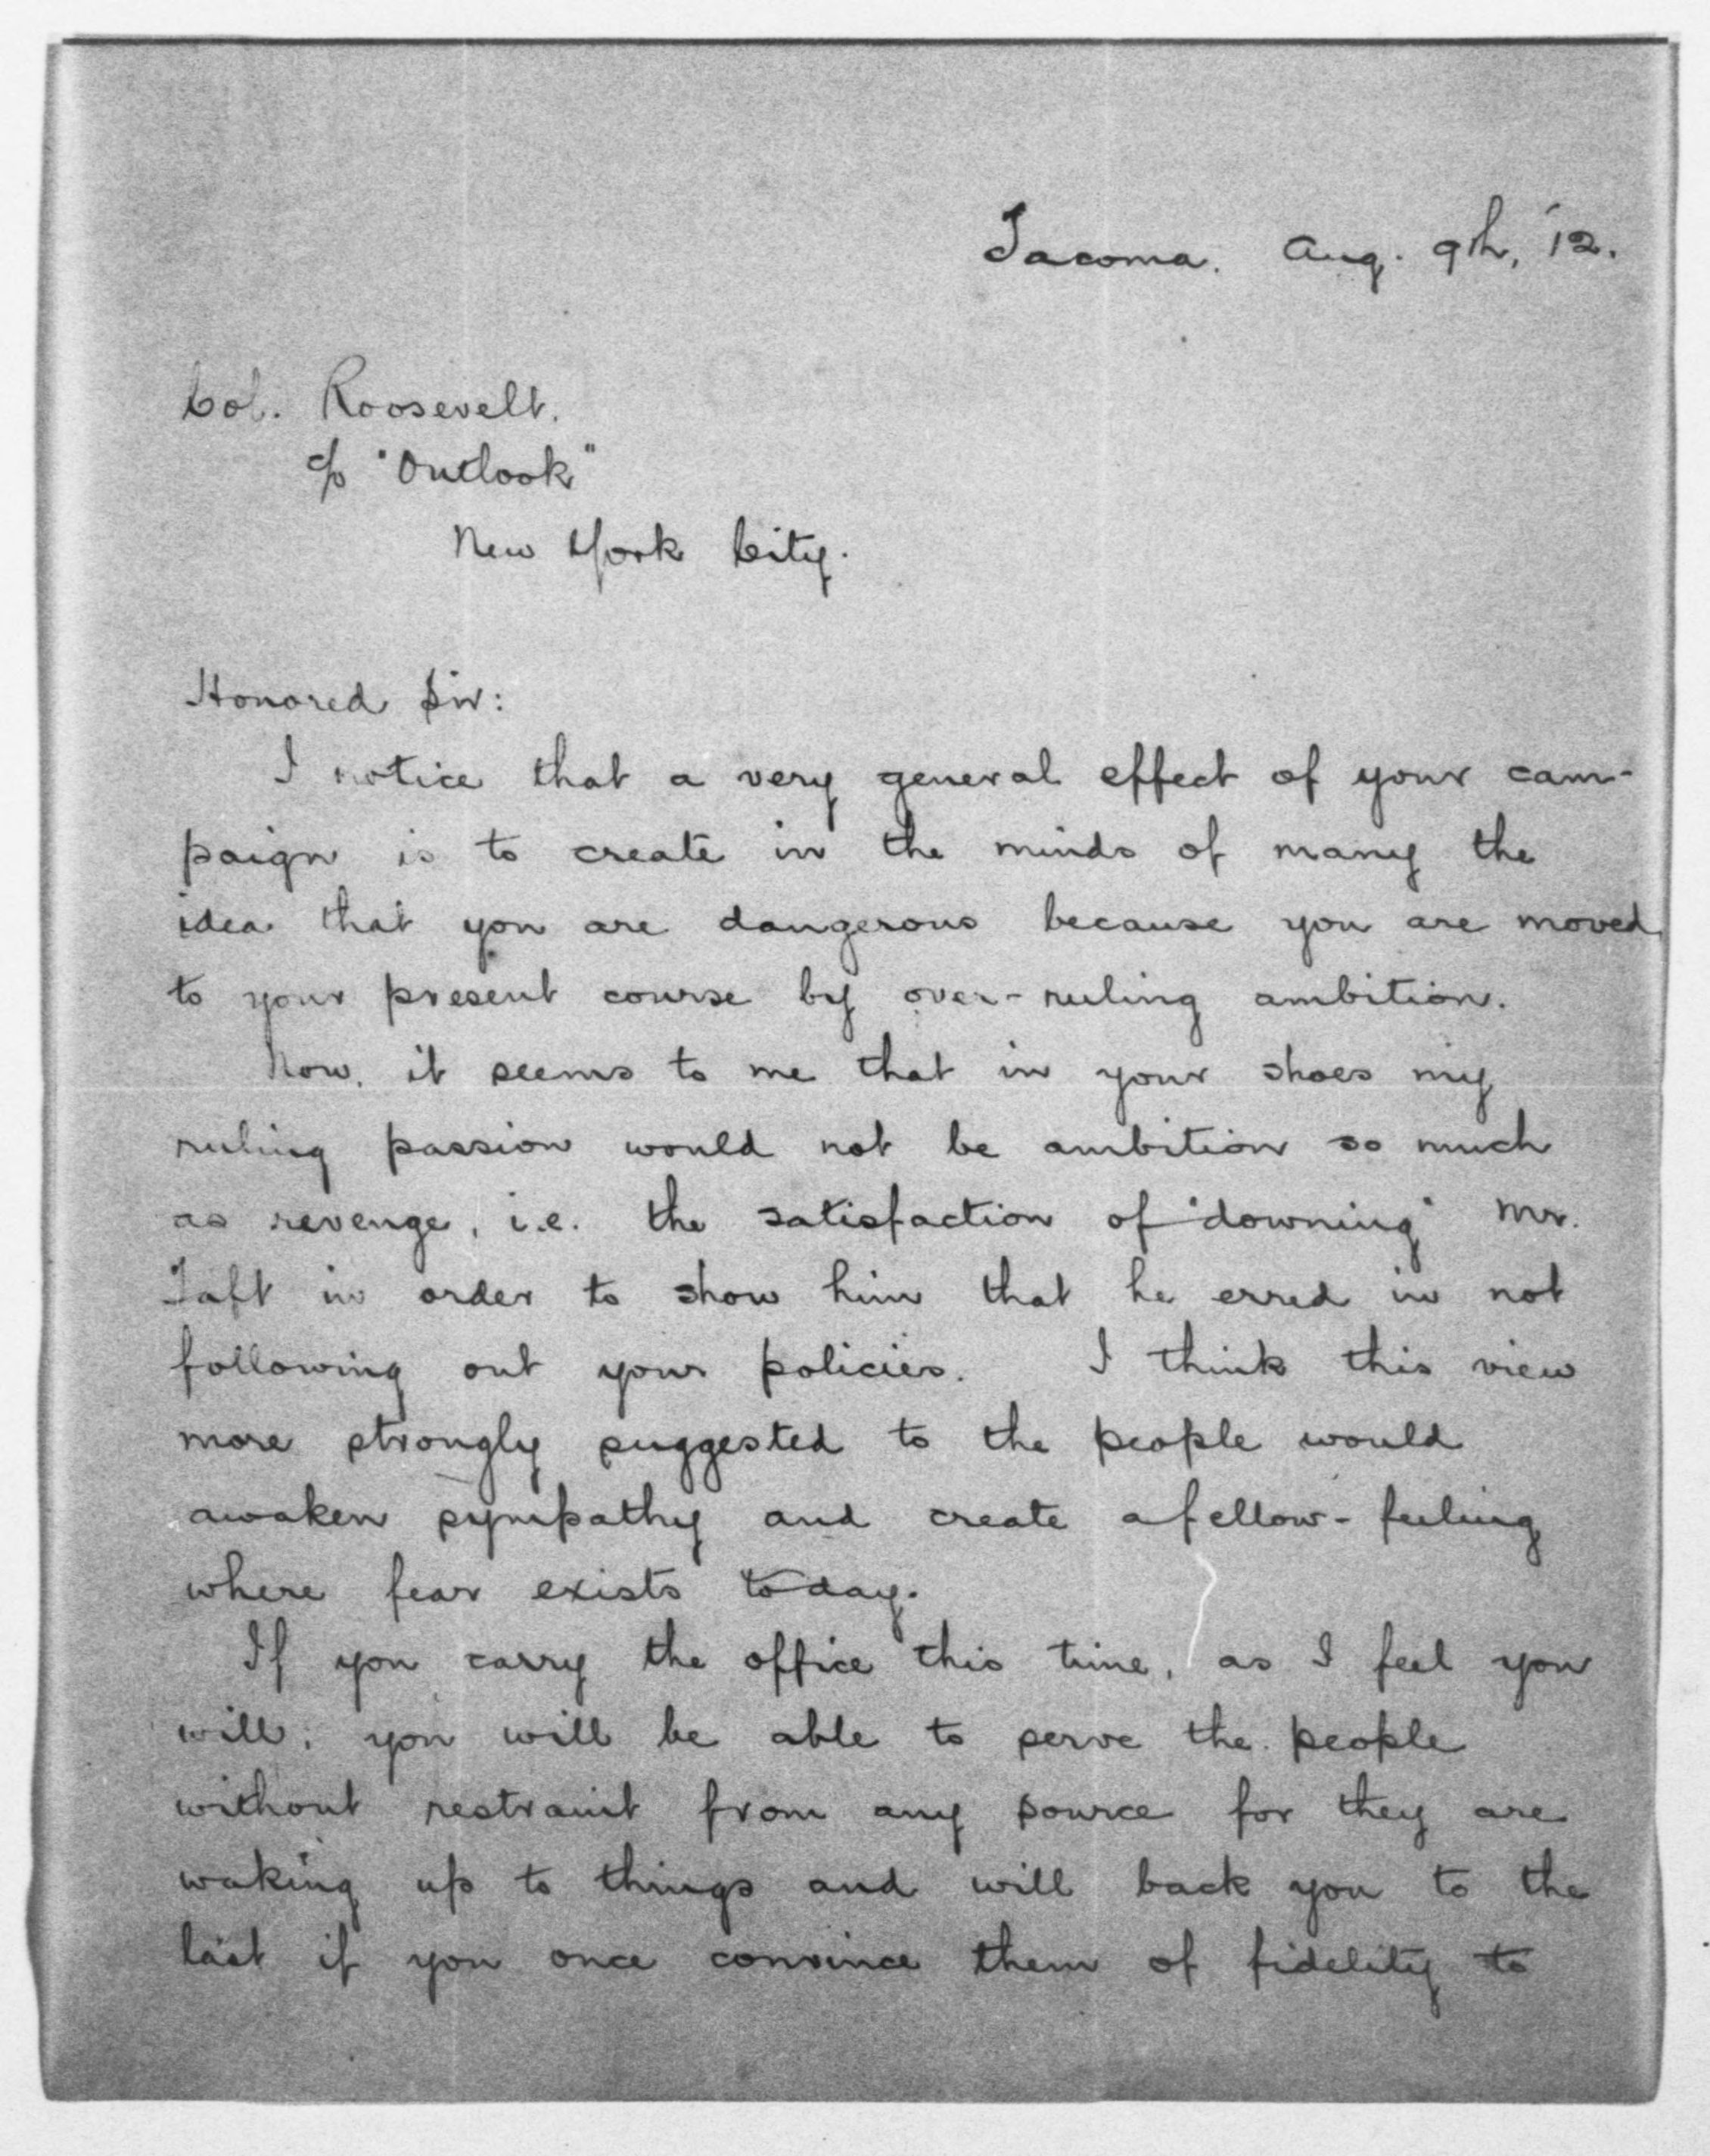 Tacoma. Aug. 9th, '12.
Col. Roosevelt.
c/o "Outlook"
New York City.
Honored Sir:
I notice that a very general effect of your cam-
paign is to create in the minds of many the
idea that you are dangerous because you are moved
to your present course by over-ruling ambition.
Now, it seems to me that in your shoes my
ruling passion would not be ambition so much
as revenge, i.e. the satisfaction of "downing" Mr.
Taft in order to show him that he erred in not
following out your policies. I think this view
more strongly suggested to the people would
awaken sympathy and create a fellow-feeling
where fear exists today.
If you carry the office this time, as I feel you
will; you will be able to serve the people
without restraint from any source for they are
waking up to things and will back you to the
last if you once convince them of fidelity to